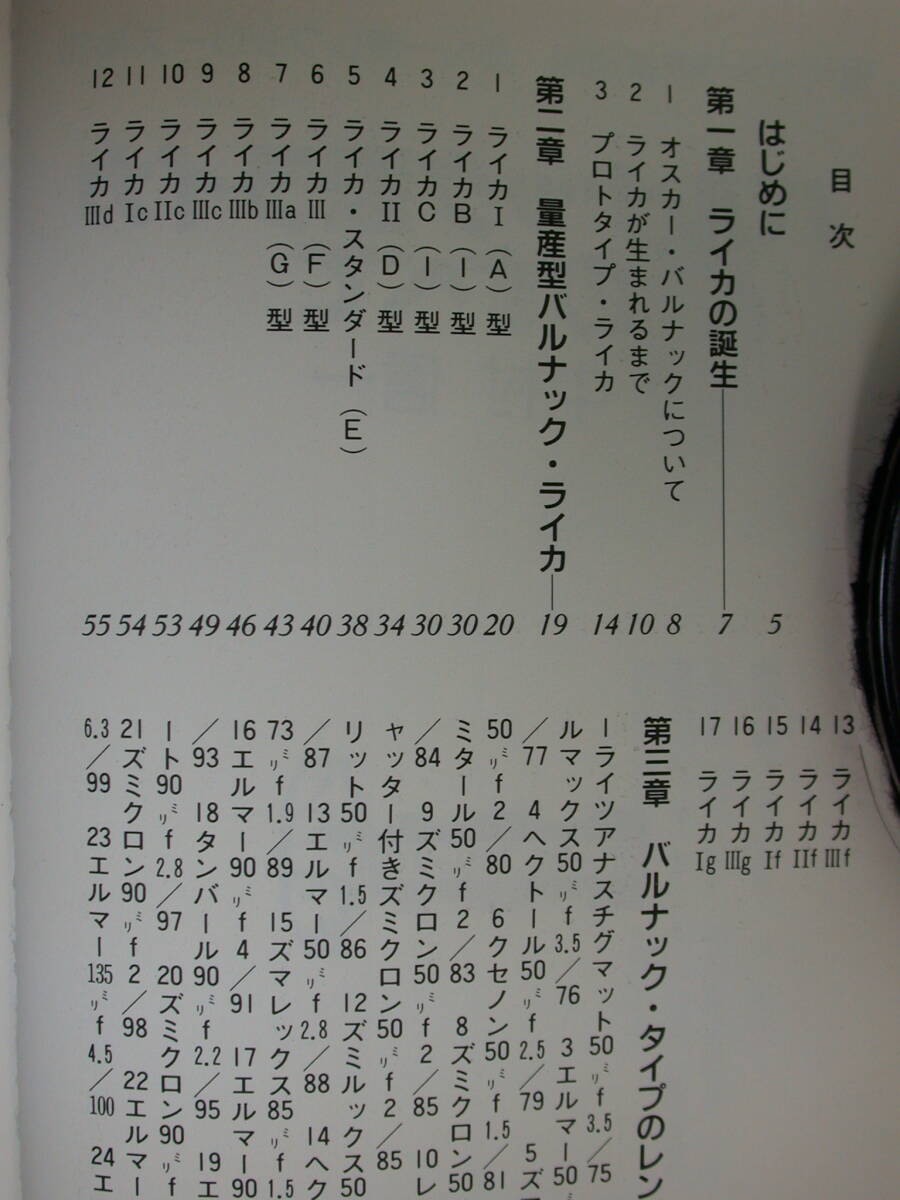 目次
はじめに 5
第一章 ライカの誕生 7
1 オスカー・バルナックについて 8
2 ライカが生まれるまで 10
3 プロトタイプ・ライカ 14
第二章 量産型バルナック・ライカ 19
1 ライカⅠ(A)型 20
2 ライカB(Ⅰ)型 30
3 ライカC(Ⅰ)型 30
4 ライカⅡ(D)型 34
5 ライカ・スタンダード(E) 38
6 ライカⅢ(F)型 40
7 ライカⅢa(G)型 43
8 ライカⅢb 46
9 ライカⅢc 49
10 ライカⅡc 53
11 ライカⅠc 54
12 ライカⅢd 55
13 ライカⅢf
14 ライカⅡf
15 ライカⅠf
16 ライカⅢg
17 ライカⅠg
第三章 バルナック・タイプのレン
1ライツアナスチグマット50㍉f3.5/75
ルマックス50㍉f3.5/76 3エルマー50
/77 4ヘクトール50㍉f2.5/79 5ズ
50㍉f2/80 6クセノン50㍉f1.5/81
ミタール50㍉f2/83 8ズミクロン50
/84 9ズミクロン50㍉f2/85 10レ
ャッター付きズミクロン50㍉f2/85
リット50㍉f1.5/86 12ズミルックス50
/87 13エルマー50㍉f2.8/88 14ヘク
73㍉f1.9/89 15ズマレックス85㍉f1.5
16エルマー90㍉f4/91 17エルマー90
/93 18タンバール90㍉f2.2/95 19エ
ート90㍉f2.8/97 20ズミクロン90㍉f
21ズミクロン90㍉f2/98 22エルマー
6.3/99 23エルマー135㍉f4.5/100 24エ